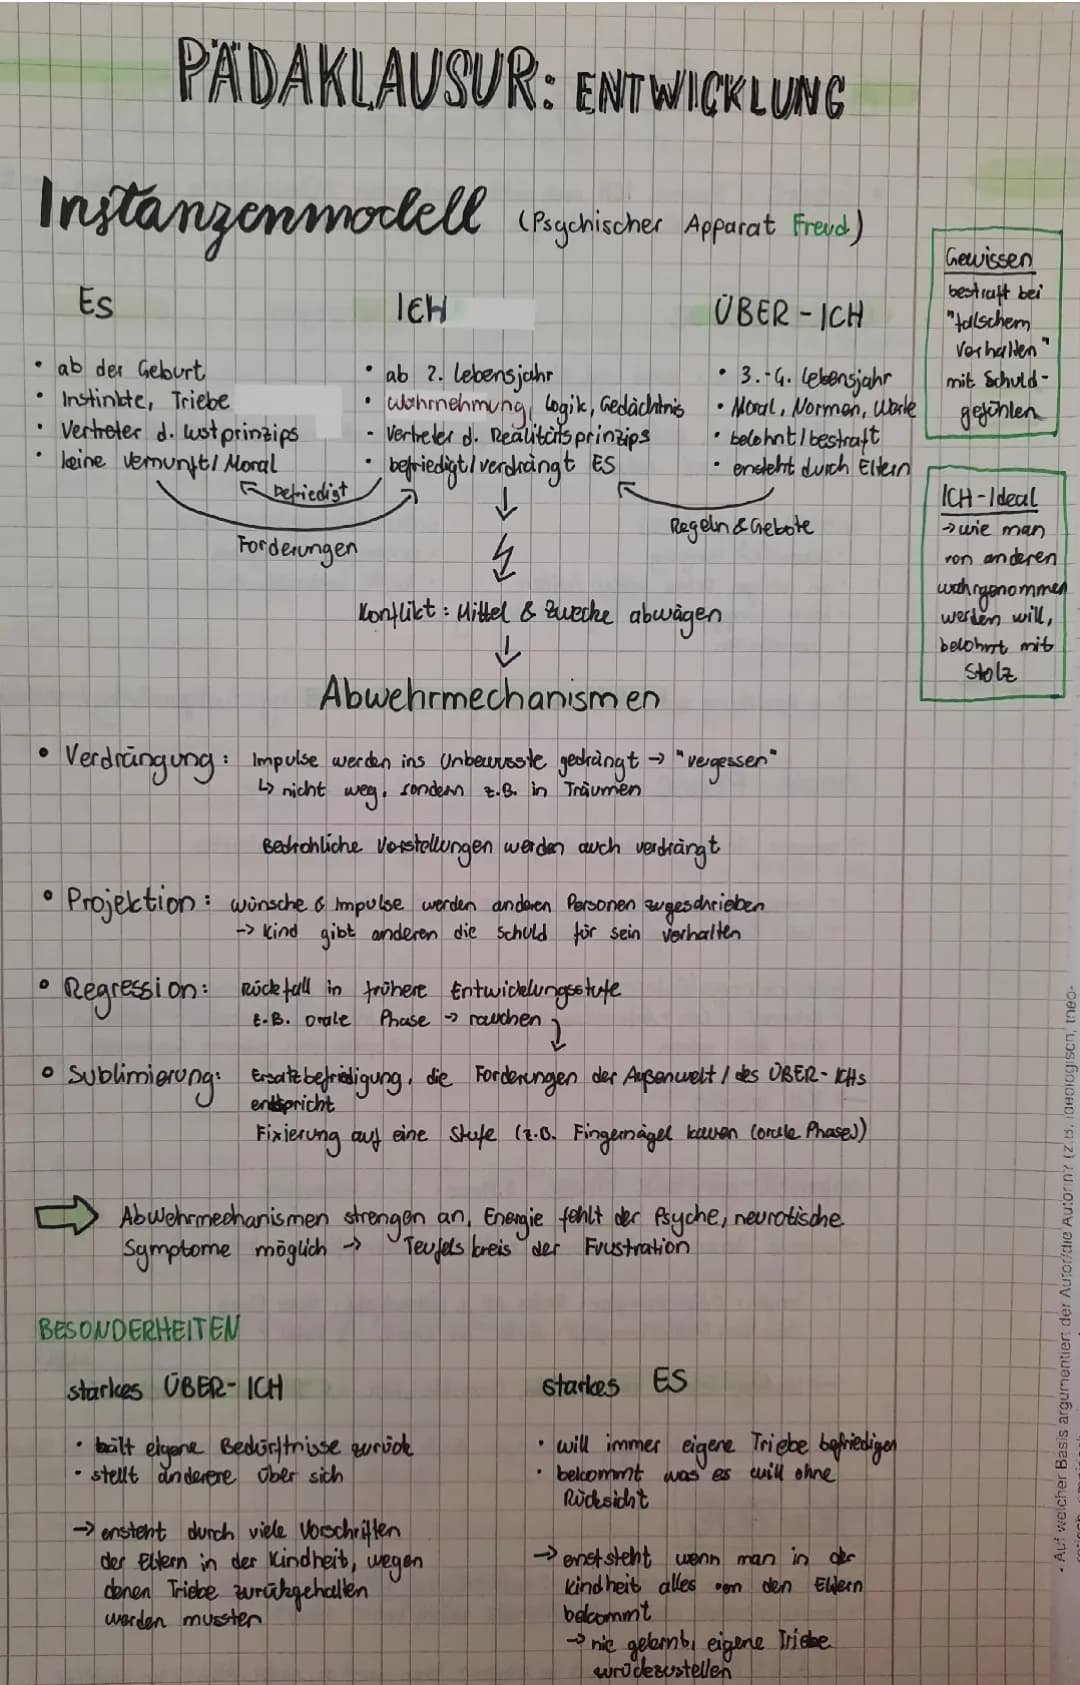 PÄDAKLAUSUR: ENTWICKLUNG
Instanzenmodell (Psychischer Apparat Freud)
Es
• ab der Geburt
• Instinkte, Triebe
• Vertreter d. Lustprinzips
• keine Vernunft/ Moral
ICH
• ab 2. Lebensjahr
• Wahrnehmung, Logik, Gedächtnis
• Vertreter d. Realitätsprinzips
• befriedigt/verdrängt ES
ÜBER-ICH
• 3.-4. Lebensjahr
• Moral, Normen, Werte
• belohnt/bestraft
• ensteht durch Eltern
befriedigt
Forderungen
Regeln & Gebote
Gewissen
bestraft bei
"falschem
Verhalten"
mit Schuld-
gefühlen
ICH-Ideal
→ wie man
von anderen
wahrgenommen
werden will,
belohnt mit
Stolz
Konflikt: Mittel & Zwecke abwägen
Abwehrmechanismen
• Verdrängung: Impulse werden ins Unbewusste gedrängt → "vergessen"
↳ nicht weg, sondern z.B. in Träumen
Bedrohliche Vorstellungen werden auch verdrängt
• Projektion: wünsche & Impulse werden anderen Personen zugeschrieben
-> Kind gibt anderen die Schuld für sein Verhalten
• Regression: Rückfall in frühere Entwicklungsstufe
z.B. orale Phase → rauchen
• Sublimierung: Ersatzbefriedigung, die Forderungen der Außenwelt / des ÜBER-ICHs
entspricht
Fixierung auf eine Stufe (z.B. Fingernägel kauen (orale Phase))
Abwehrmechanismen strengen an, Energie fehlt der Psyche, neurotische
Symptome möglich → Teufelskreis der Frustration
BESONDERHEITEN
starkes ÜBER-ICH
• hält eigene Bedürfnisse zurück
• stellt anderere über sich
→ ensteht durch viele Vorschriften
der Eltern in der Kindheit, wegen
denen Triebe zurückgehalten
werden mussten
starkes ES
• will immer eigene Triebe befriedigen
• bekommt was es will ohne
Rücksicht
→ enststeht wenn man in der
Kindheit alles von den Eltern
bekommt
→ nie gelernt, eigene Triebe
zurückzustellen
• Auf welcher Basis argumentiert der Autor/die Autorin? (z.B. ideologisch, theo-